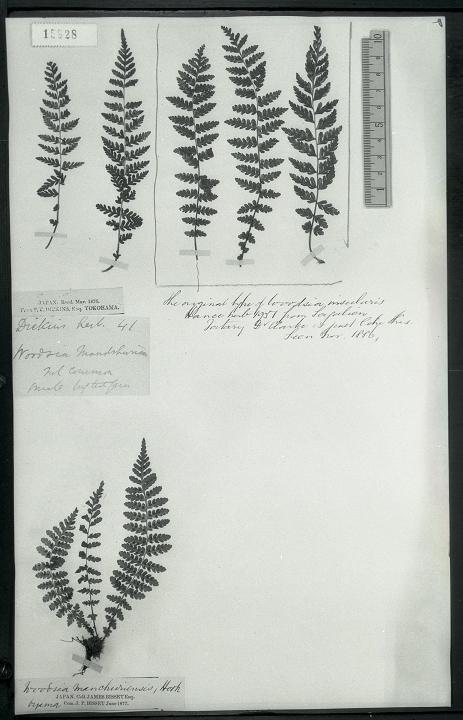 15928
10
5
1
JAPAN. Recd. May. 1876.
From F. V. DICKINS, Esq. YOKOHAMA.
Dickins herb. 41
Woodsia Mandshuriensis
Not common
The original type of Woodsia insularis
Hance herb 1951 from Serpilson
Tartary Dr Clarke is just like this.
Seen Nov. 1886.
Woodsia manchuriensis, Hook
JAPAN. Coll. JAMES BISSET Esq.
Com. J. P. BISSET June 1877.